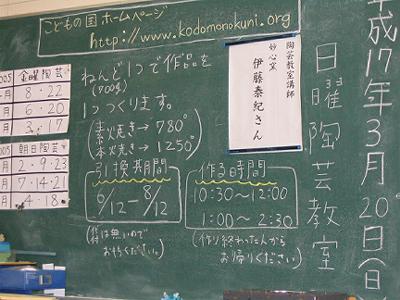 こどもの国ホームページ
http://www.kodomonokuni.org
平成17年3月20日(日)
日曜陶芸教室
陶芸教室講師
妙心窯
伊藤泰紀さん
ねんど1つで作品を
(700g)
1つつくります。
素焼き→780°
本焼き→1250°
引換期間
6/12〜8/12
作る時間
10:30〜12:00
1:00〜2:30
(作り終わった人から
お帰りください。)
005 金曜陶芸
月 8・22
月 6・20
月 3・17
005 朝日陶芸
月 2・9・23
月 7・14・21
月 4・18